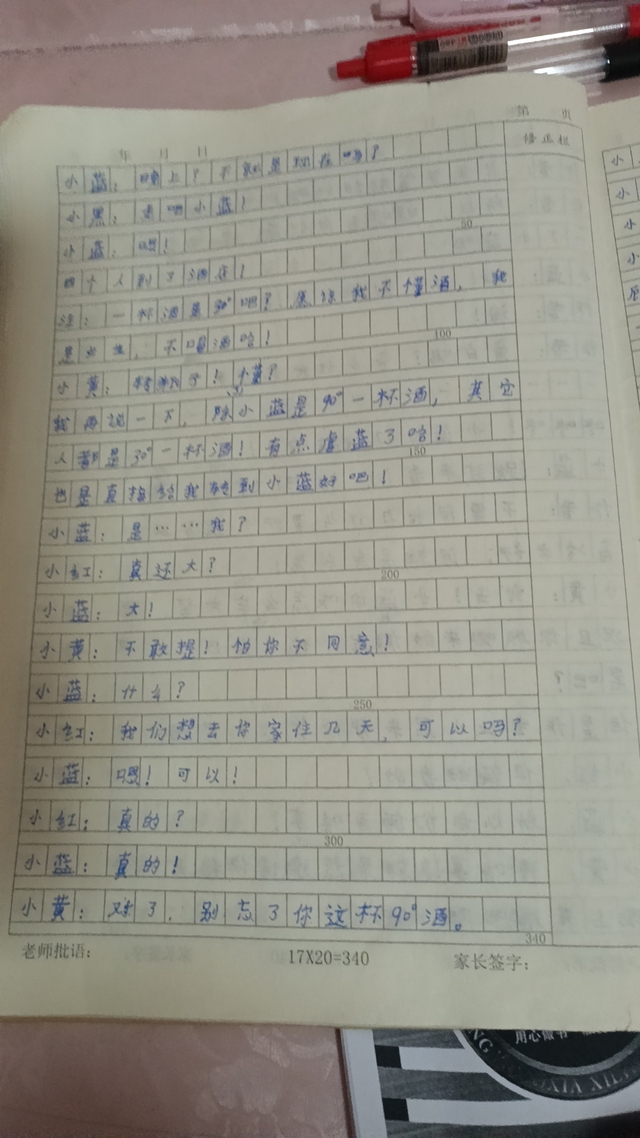 第 页
年 月 日
修正栏
小蓝：晚上？不就是现在吗？
小黑：走吧小蓝！
小蓝：嗯！
50
四个人到了酒店！
注：一杯酒是90°吧？反正我不懂酒，我
是女生，不喝酒哈！
100
小黄：转 了！懂？
我再说一下，除小蓝是90°一杯酒，其它
人都是30°一杯酒！有点虐蓝了哈！
150
也是直接给我转到小蓝好吧！
小蓝：是……我？
小红：真还大？
200
小蓝：大！
小黄：不敢提！怕你不同意！
小蓝：什么？
250
小红：我们想去你家住几天，可以吗？
小蓝：嗯！可以！
小红：真的？
300
小蓝：真的！
小黄：对了，别忘了你这杯90°酒。
340
老师批语： 17X20=340 家长签字：